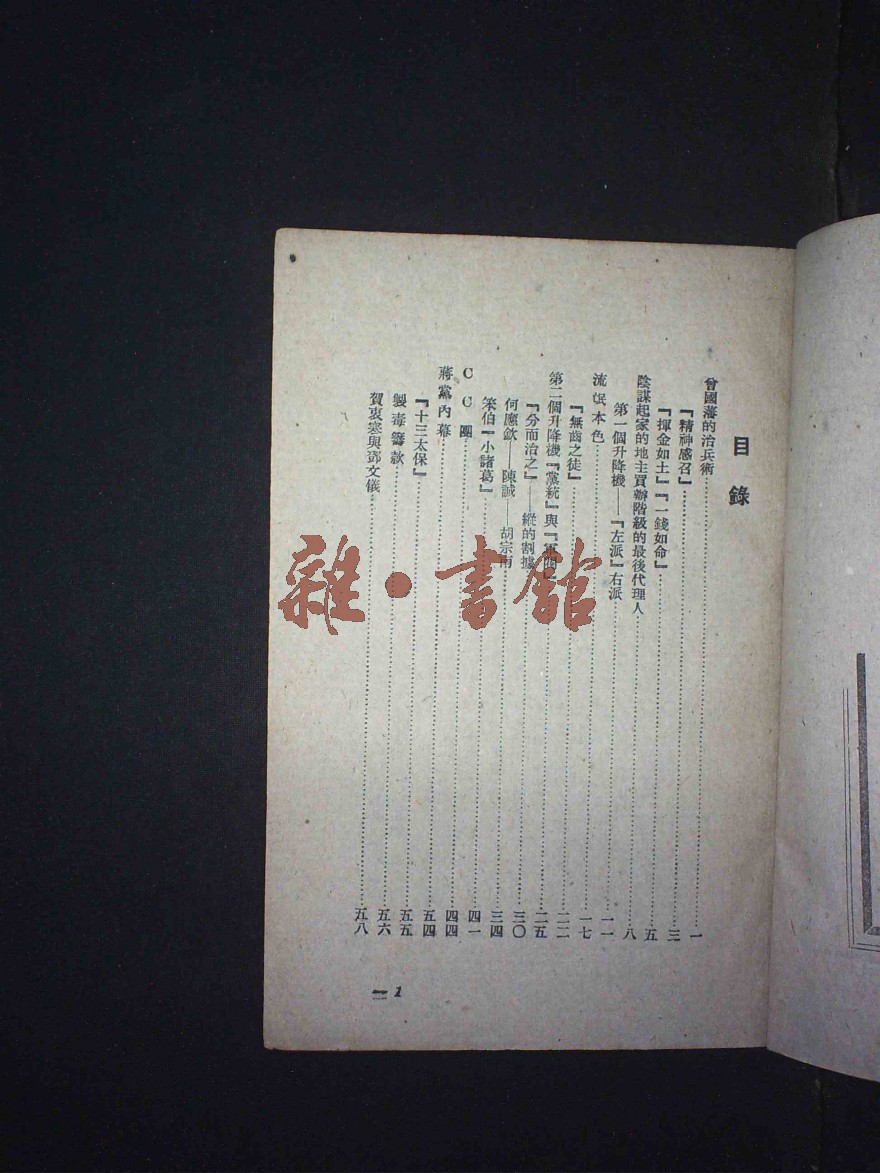 目錄
曾國藩的治兵術……一
『精神感召』……三
『揮金如土』『一錢如命』……五
陰謀起家的地主買辦階級的最後代理人……八
第一個升降機——『左派』右派……一一
流氓本色……一七
『無齒之徒』……二二
第二個升降機『黨統』與『軍閥』……二五
『分而治之』——縱的割據……三〇
何應欽——陳誠——胡宗南……三四
笨伯『小諸葛』……四一
CC團……四四
蔣黨內幕……五四
『十三太保』……五五
製毒籌款……五六
賀衷寒與鄧文儀……五八
1
雜·書館